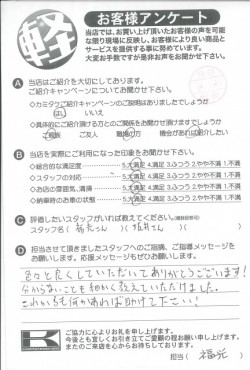 軽
お客様アンケート
当店では、お買い上げ頂いたお客様の声を可能
な限り現場に反映し、お客様により良い商品と
サービスを提供する事に努めています。
大変お手数ですが是非お声をお聞かせ下さい。
A 当店はご紹介を大切にしております。
ご紹介キャンペーンについてお聞かせ下さい。
はい いいえ
ご親族 ご友人 職場の方 機会があれば紹介したい
B 当店を実際にご利用になった印象をお聞かせ下さい。
・総合的な満足度 5.大満足 4.満足 3.ふつう 2.やや不満 1.不満
・スタッフの対応 5.大満足 4.満足 3.ふつう 2.やや不満 1.不満
・お店の雰囲気、清掃 5.大満足 4.満足 3.ふつう 2.やや不満 1.不満
・納車時のお車の状態 5.大満足 4.満足 3.ふつう 2.やや不満 1.不満
C 評価したいスタッフがいれば教えてください。
スタッフ名
D 担当させて頂きましたスタッフへのご指摘、ご指導メッセージを
お願いします。応援メッセージもぜひお願いします。
色々と良くしていただいてありがとうございます!
分からないことも細かく教えていただけました。
これからも何かあれば助けて下さい!
K
ご協力に心よりお礼を申し上げます。
今後とも宜しくお引き立てご愛顧の程お願い申し上げます。
またのご来店を心からお待ちしております。
担当(福元)